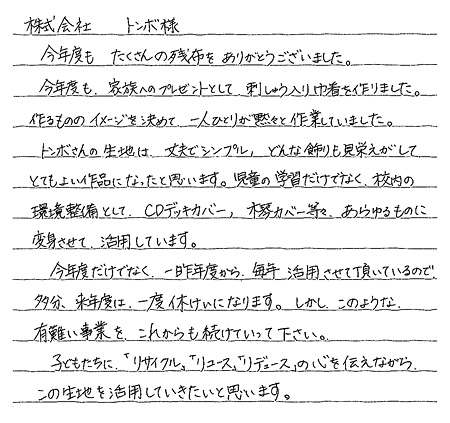 株式会社　トンボ様
今年度も たくさんの残布を ありがとうございました。
今年度も、家族へのプレゼントとして、刺しゅう入り巾着を作りました。
作るもののイメージを決めて、一人ひとりが黙々と作業していました。
トンボさんの生地は、丈夫でシンプル、どんな飾りも見栄えがして
とてもよい作品になったと思います。児童の学習だけでなく、校内の
環境整備として、CDデッキカバー、木琴カバー等々、あらゆるものに
変身させて、活用しています。
今年度だけでなく、一昨年度から、毎年 活用させて頂いているので、
多分、来年度は、一度休けいになります。しかし、このような、
有難い事業を、これからも続けていって下さい。
子どもたちに、「リサイクル」「リユース」「リデュース」の心を伝えながら、
この生地を活用していきたいと思います。